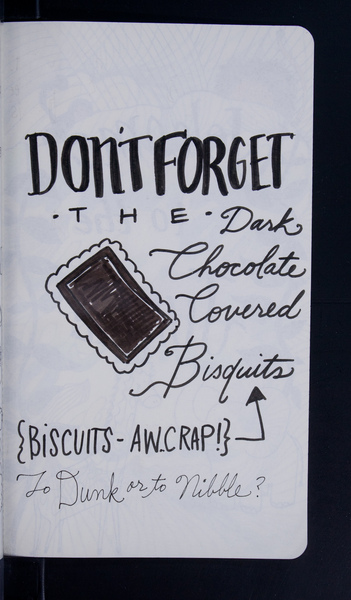 DON'T FORGET
· THE · Dark
Chocolate
Covered
Bisquits
{BISCUITS - AW..CRAP!}
To Dunk or to Nibble?